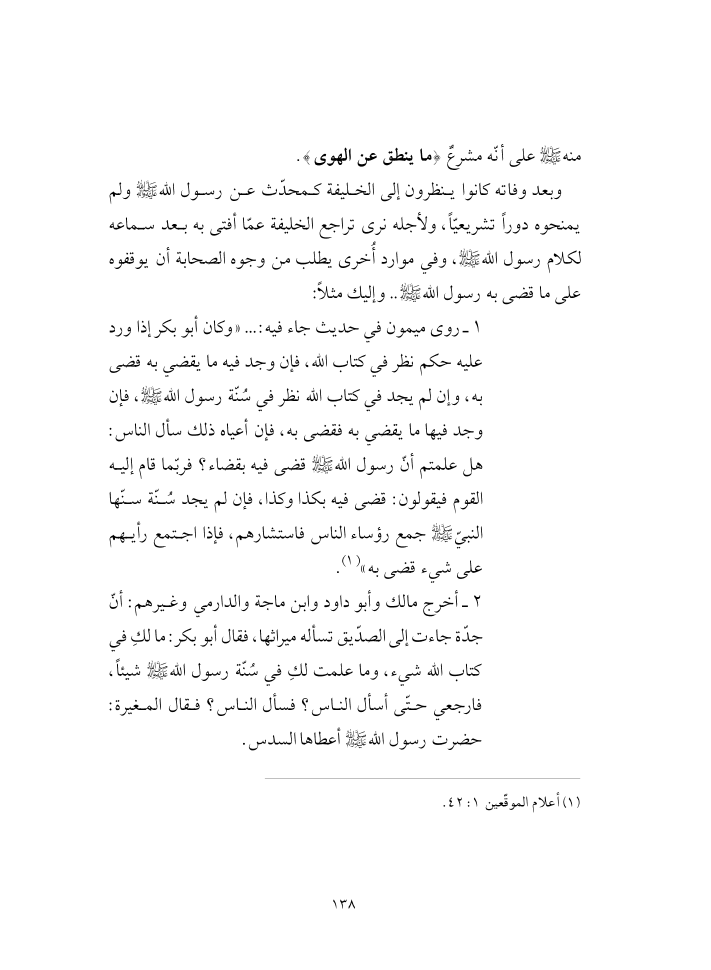 منهﷺ على أنّه مشرعٌ ﴿ما ينطق عن الهوى﴾.
وبعد وفاته كانوا يـنظرون إلى الخـليفة كـمحدّث عـن رسـول اللهﷺ ولم
يمنحوه دوراً تشريعيّاً، ولأجله نرى تراجع الخليفة عمّا أفتى به بـعد سـماعه
لكلام رسول اللهﷺ، وفي موارد أُخرى يطلب من وجوه الصحابة أن يوقفوه
على ما قضى به رسول اللهﷺ.. وإليك مثلاً:
١ ـ روى ميمون في حديث جاء فيه:... «وكان أبو بكر إذا ورد
عليه حكم نظر في كتاب الله، فإن وجد فيه ما يقضي به قضى
به، وإن لم يجد في كتاب الله نظر في سُنّة رسول اللهﷺ، فإن
وجد فيها ما يقضي به فقضى به، فإن أعياه ذلك سأل الناس:
هل علمتم أنّ رسول اللهﷺ قضى فيه بقضاء؟ فربّما قام إليـه
القوم فيقولون: قضى فيه بكذا وكذا، فإن لم يجد سُـنّة سـنّها
النبيّﷺ جمع رؤساء الناس فاستشارهم، فإذا اجـتمع رأيـهم
على شيء قضى به»(١).
٢ ـ أخرج مالك وأبو داود وابن ماجة والدارمي وغـيرهم: أنّ
جدّة جاءت إلى الصدّيق تسأله ميراثها، فقال أبو بكر: ما لكِ في
كتاب الله شيء، وما علمت لكِ في سُنّة رسول اللهﷺ شيئاً،
فارجعي حـتّى أسأل النـاس؟ فسأل النـاس؟ فـقال المـغيرة:
حضرت رسول اللهﷺ أعطاها السدس.
(١) أعلام الموقّعين ١: ٤٢.
١٣٨